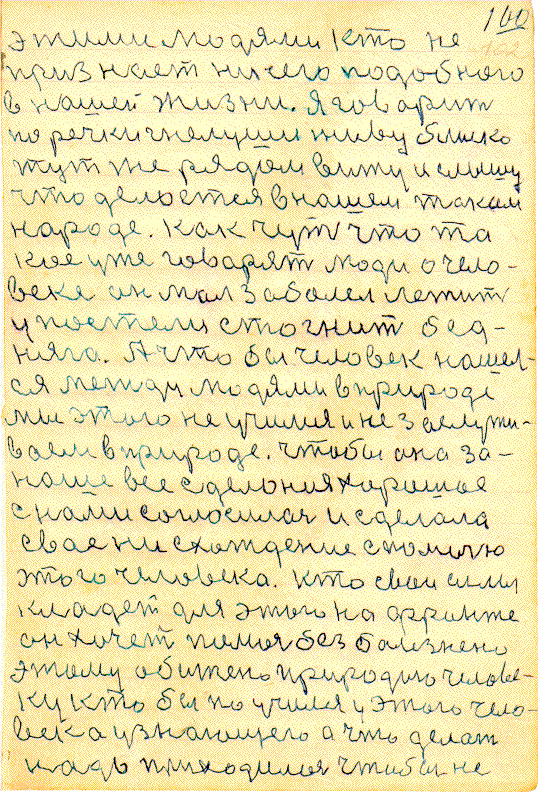 100
102
этими людями кто не
признает ничего подобного
в нашей жизни. Я говарит
по речки чнелуши живу близко
тут же рядом вижу и слышу
что делоется в нашем таком
народе. Как чуть что та
кое уже говарят люди о чело-
веке он мол заболел лежит
у постели стогнит бед-
няга. А что бы человек нашел-
ся между людями в природе
мы этого не училися и не заслужи-
ваем в природе. Чтобы она за-
наше все сделония хорошое
с нами соглосилас и сделала
свае ни схождение с помичю
этого человека. Кто свои силы
кладет для этого на фринте
он хочет помоч без болизнено
этому обижено природию челове-
ку кто бы по училсяя у этого чело-
века узнающего а что делат
надо приходилоя чтобы не